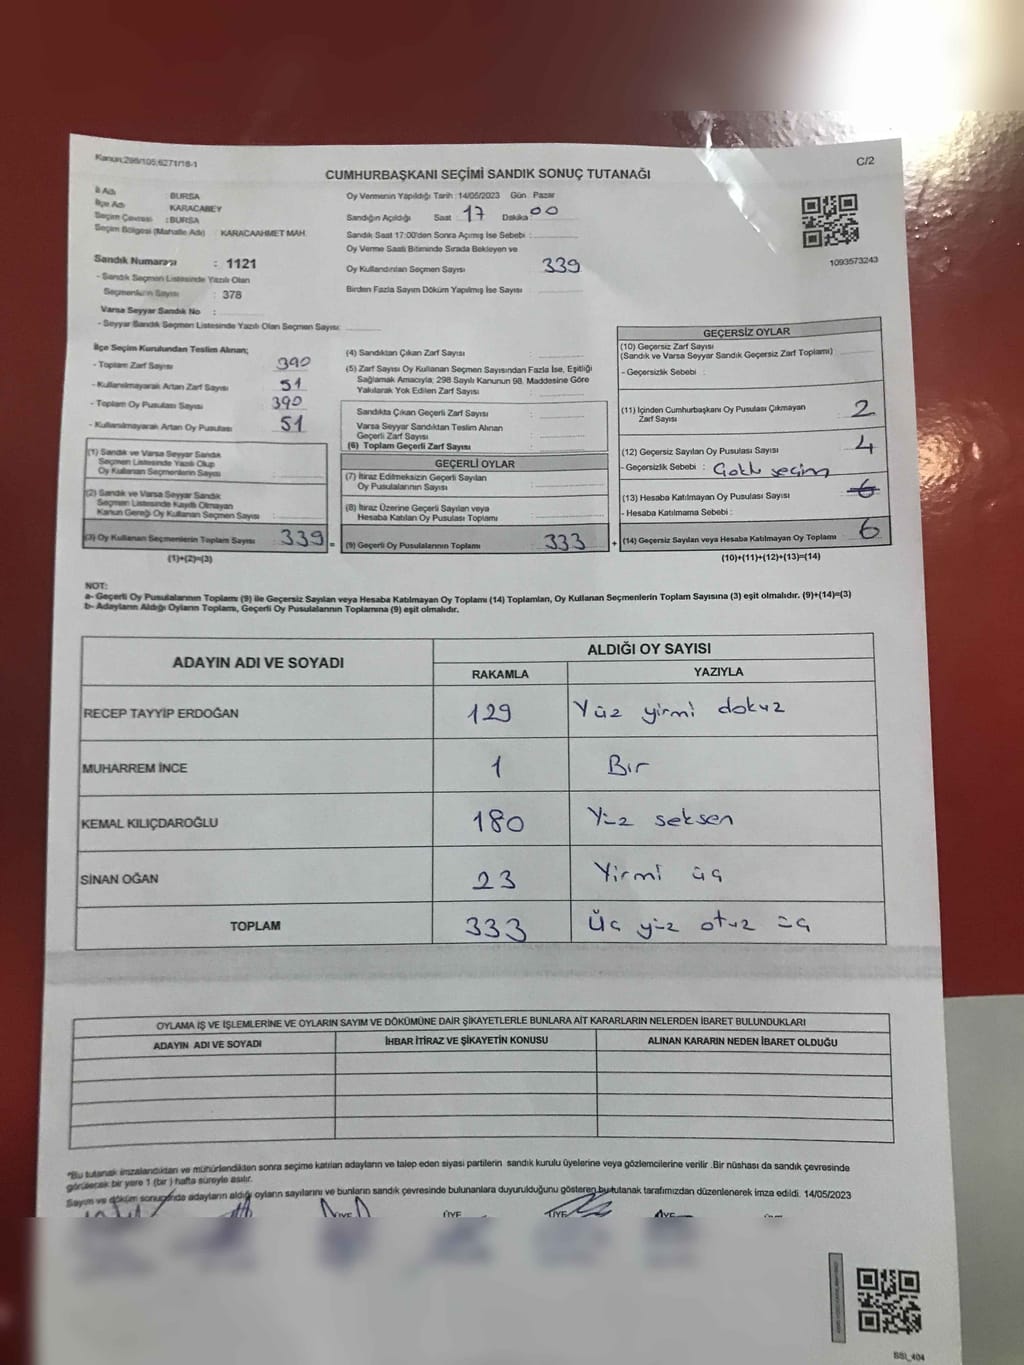 Kanun;298/105;6271/18-1
C/2
CUMHURBAŞKANI SEÇİMİ SANDIK SONUÇ TUTANAĞI
İl Adı BURSA
İlçe Adı KARACABEY
Seçim Çevresi :BURSA
Seçim Bölgesi (Mahalle Adı) : KARACAAHMET MAH.
Sandık Numarası : 1121
- Sandık Seçmen Listesinde Yazılı Olan
Seçmenlerin Sayısı : 378
Varsa Seyyar Sandık No :
- Seyyar Sandık Seçmen Listesinde Yazılı Olan Seçmen Sayısı:
Oy Vermenin Yapıldığı Tarih : 14/05/2023 Gün Pazar
Sandığın Açıldığı Saat 17 Dakika 00
Sandık Saat 17:00'den Sonra Açımış İse Sebebi :
Oy Verme Saati Bitiminde Sırada Bekleyen ve
Oy Kullandırılan Seçmen Sayısı 339
Birden Fazla Sayım Döküm Yapılmış İse Sayısı :
1093573243
İlçe Seçim Kurulundan Teslim Alınan;
- Toplam Zarf Sayısı 390
- Kullanılmayarak Artan Zarf Sayısı 51
- Toplam Oy Pusulası Sayısı 390
- Kullanılmayarak Artan Oy Pusulası 51
(1) Sandık ve Varsa Seyyar Sandık
Seçmen Listesinde Yazılı Olup
Oy Kullanan Seçmenlerin Sayısı :
(2) Sandık ve Varsa Seyyar Sandık
Seçmen Listesinde Kayıtlı Olmayan
Kanun Gereği Oy Kullanan Seçmen Sayısı :
(3) Oy Kullanan Seçmenlerin Toplam Sayısı 339 =
(1)+(2)=(3)
(4) Sandıktan Çıkan Zarf Sayısı :
(5) Zarf Sayısı Oy Kullanan Seçmen Sayısından Fazla İse, Eşitliği
Sağlamak Amacıyla; 298 Sayılı Kanunun 98. Maddesine Göre
Yakılarak Yok Edilen Zarf Sayısı :
Sandıkta Çıkan Geçerli Zarf Sayısı :
Varsa Seyyar Sandıktan Teslim Alınan
Geçerli Zarf Sayısı :
(6) Toplam Geçerli Zarf Sayısı :
GEÇERLİ OYLAR
(7) İtiraz Edilmeksizin Geçerli Sayılan
Oy Pusulalarının Sayısı :
(8) İtiraz Üzerine Geçerli Sayılan veya
Hesaba Katılan Oy Pusulası Toplamı :
(9) Geçerli Oy Pusulalarının Toplamı : 333 +
GEÇERSİZ OYLAR
(10) Geçersiz Zarf Sayısı
(Sandık ve Varsa Seyyar Sandık Geçersiz Zarf Toplamı)
- Geçersizlik Sebebi :
(11) İçinden Cumhurbaşkanı Oy Pusulası Çıkmayan
Zarf Sayısı 2
(12) Geçersiz Sayılan Oy Pusulası Sayısı 4
- Geçersizlik Sebebi : Çoklu seçim
(13) Hesaba Katılmayan Oy Pusulası Sayısı 6
- Hesaba Katılmama Sebebi :
(14) Geçersiz Sayılan veya Hesaba Katılmayan Oy Toplamı : 6
(10)+(11)+(12)+(13)=(14)
NOT:
a- Geçerli Oy Pusulalarının Toplamı (9) ile Geçersiz Sayılan veya Hesaba Katılmayan Oy Toplamı (14) Toplamları, Oy Kullanan Seçmenlerin Toplam Sayısına (3) eşit olmalıdır. (9)+(14)=(3)
b- Adayların Aldığı Oyların Toplamı, Geçerli Oy Pusulalarının Toplamına (9) eşit olmalıdır.
ADAYIN ADI VE SOYADI ALDIĞI OY SAYISI
RAKAMLA YAZIYLA
RECEP TAYYİP ERDOĞAN 129 Yüz yirmi dokuz
MUHARREM İNCE 1 Bır
KEMAL KILIÇDAROĞLU 180 Yüz seksen
SİNAN OĞAN 23 Yirmi üç
TOPLAM 333 Üç yüz otuz üç
OYLAMA İŞ VE İŞLEMLERİNE VE OYLARIN SAYIM VE DÖKÜMÜNE DAİR ŞİKAYETLERLE BUNLARA AİT KARARLARIN NELERDEN İBARET BULUNDUKLARI
ADAYIN ADI VE SOYADI İHBAR İTİRAZ VE ŞİKAYETİN KONUSU ALINAN KARARIN NEDEN İBARET OLDUĞU
*Bu tutanak imzalandıktan ve mühürlendikten sonra seçime katılan adayların ve talep eden siyasi partilerin sandık kurulu üyelerine veya gözlemcilerine verilir .Bir nüshası da sandık çevresinde
görülecek bir yere 1 (bir ) hafta süreyle asılır.
Sayım ve döküm sonucunda adayların aldığı oyların sayılarını ve bunların sandık çevresinde bulunanlara duyurulduğunu gösteren bu tutanak tarafımızdan düzenlenerek imza edildi. 14/05/2023
ÜYE ÜYE ÜYE ÜYE
BSI_404